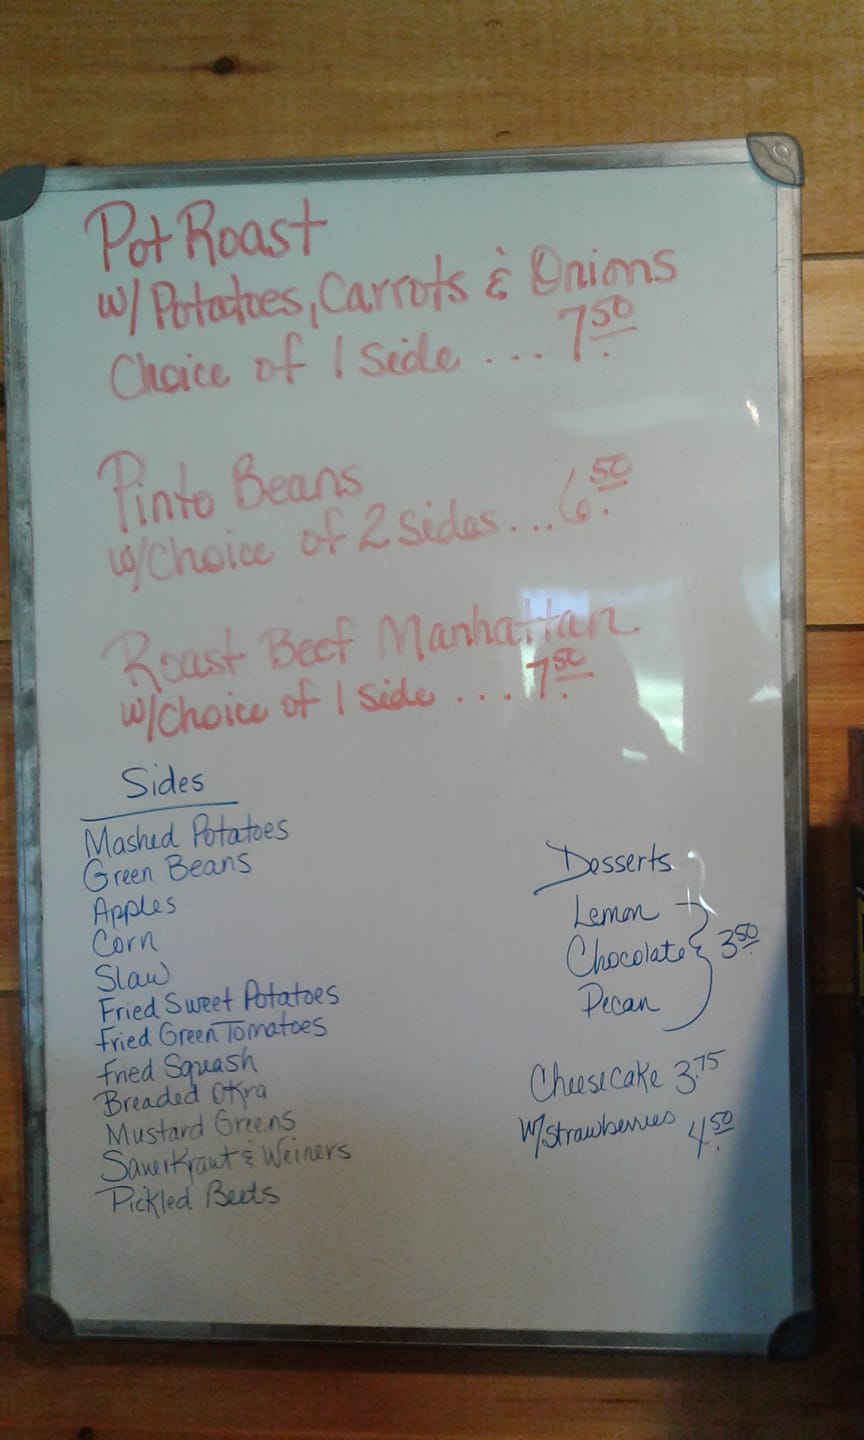 Pot Roast
w/ Potatoes, Carrots & Onions
Choice of 1 Side ... 7.50
Pinto Beans
w/Choice of 2 Sides ... 6.50
Roast Beef Manhattan
w/Choice of 1 Side ... 7.50
Sides
Mashed Potatoes
Green Beans
Apples
Corn
Slaw
Fried Sweet Potatoes
Fried Green Tomatoes
Fried Squash
Breaded Okra
Mustard Greens
Sauerkraut & Weiners
Pickled Beets
Desserts
Lemon
Chocolate 3.50
Pecan
Cheesecake 3.75
w/strawberries 4.50